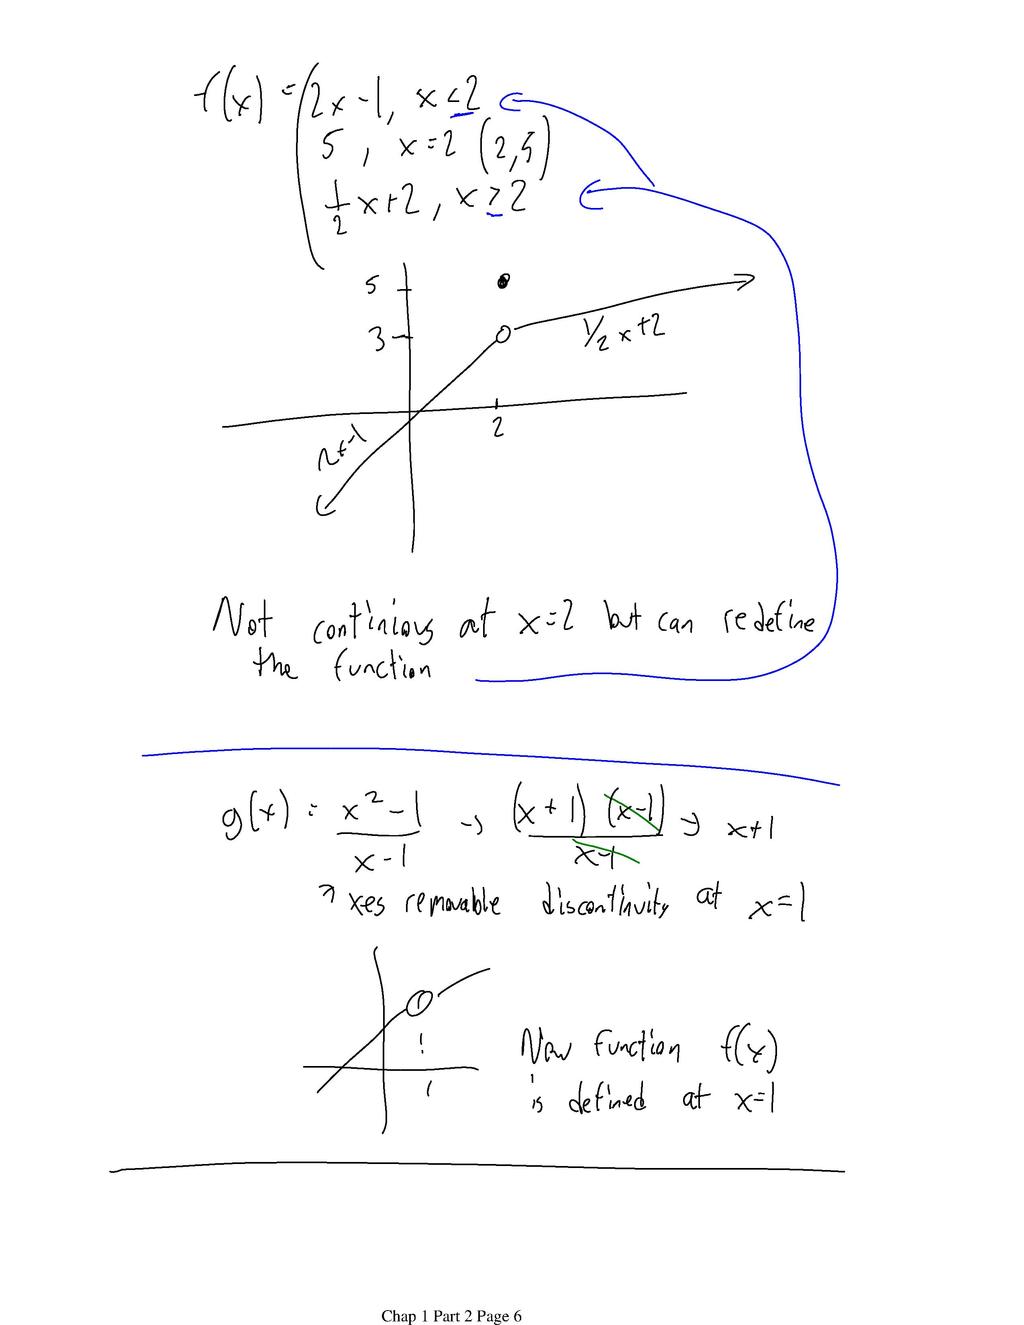 f(x) = { 2x-1, x ≤ 2
5, x=2 (2,5)
1/2 x+2, x ≥ 2
5
3
1/2 x+2
2
Not continious at x=2 but can redefine
the function
g(x) = x²-1 / x-1 → (x+1)(x-1) / x-1 → x+1
↗ xes removable discontinuity at x=1
! Now function f(x)
1 is defined at x=1
Chap 1 Part 2 Page 6